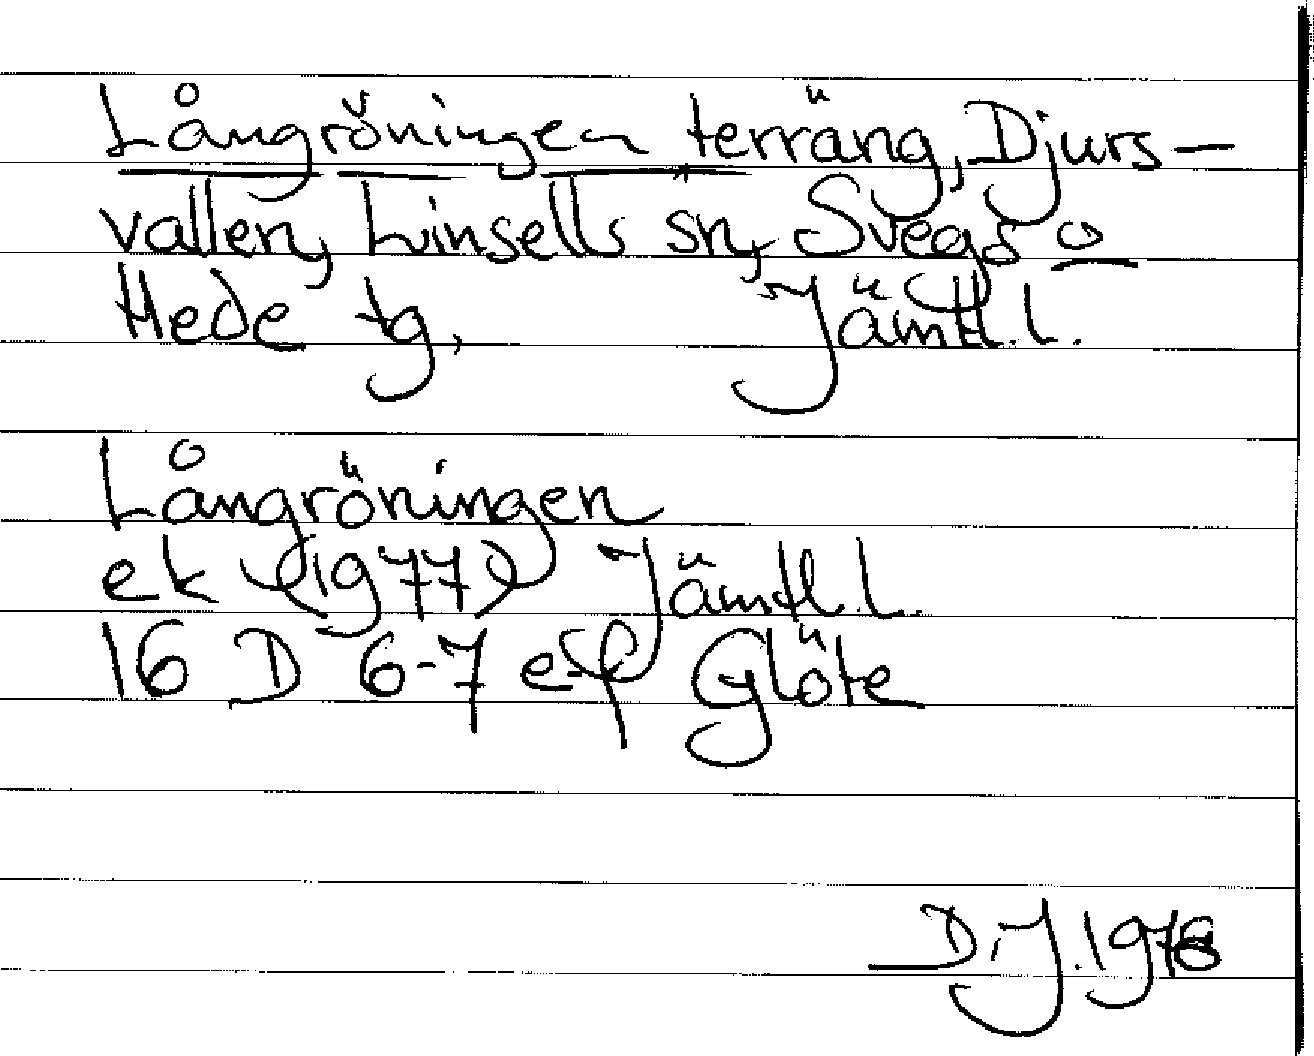 Långröningen terräng, Djurs-
vallen, Linsells sn, Svegs o
Hede tg, Jämtl.l.
Långröningen
ek (1977) Jämtl.l.
16 D 6-7 e-f Glöte
D.J.1978